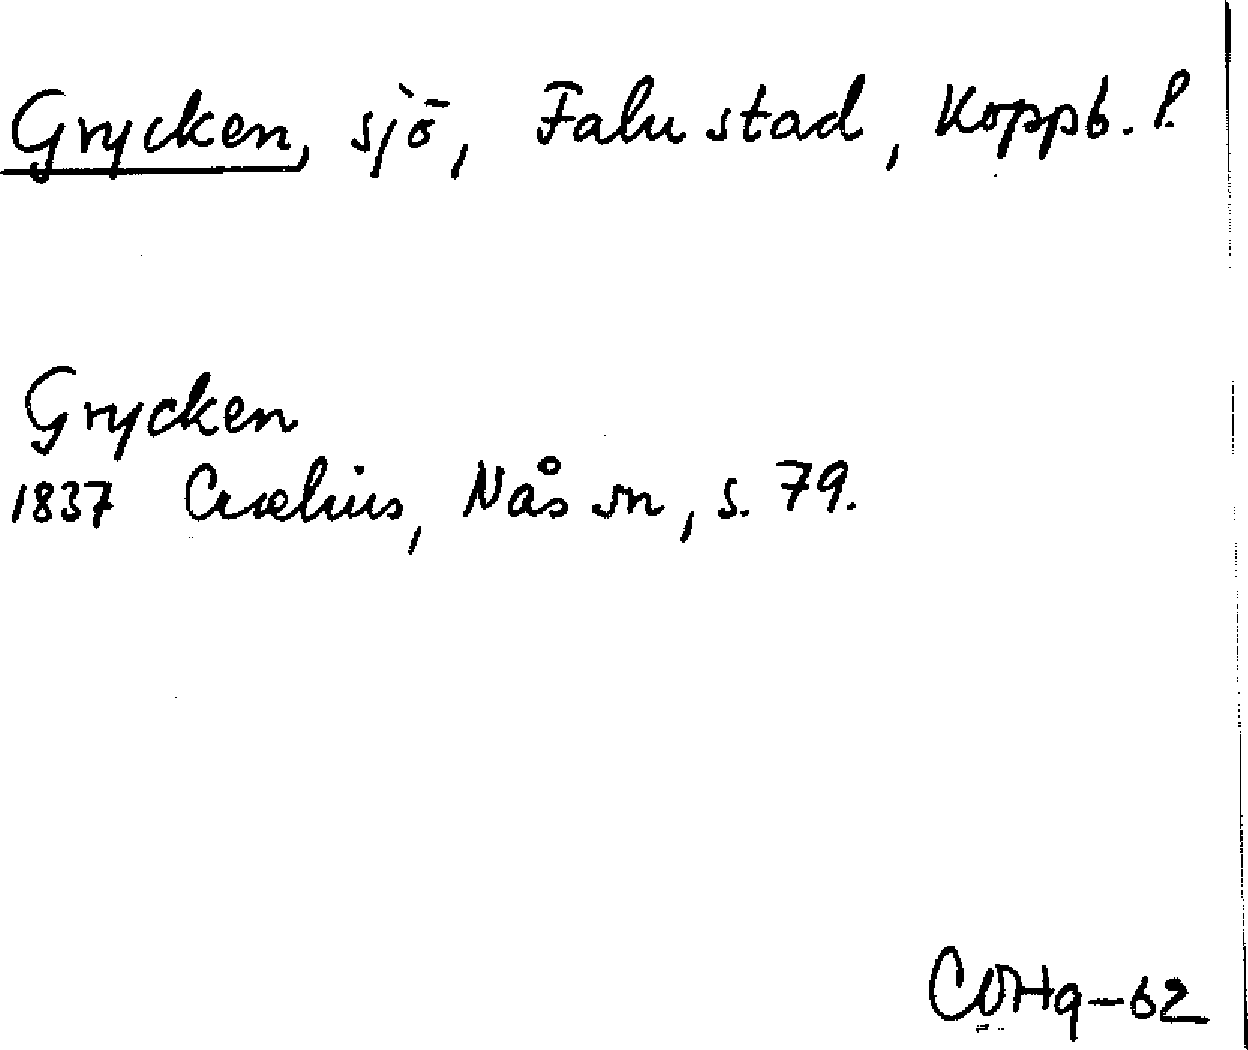 Grycken, sjö, Falu stad, Koppb. l.
Grycken
1837 Crælius, Nås sn, s. 79.
COHq-62